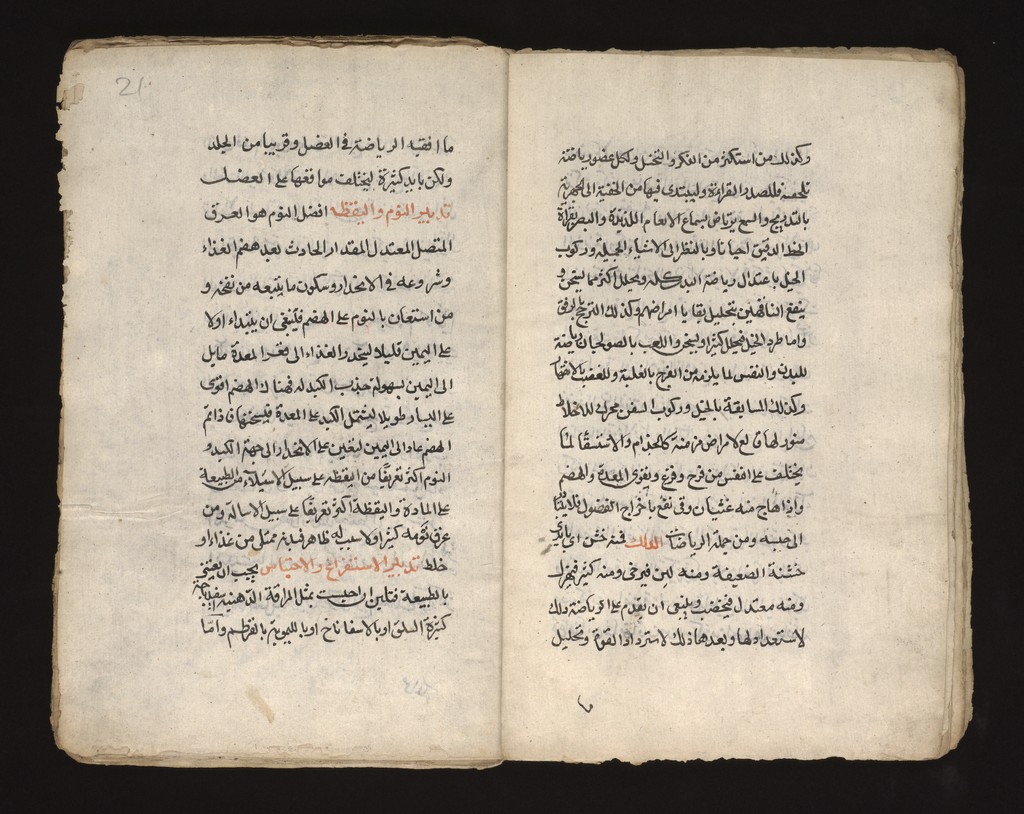 وكذلك من استكثر من الفكر والتخيل ولكل عضو رياضة
تخصه فللصدر القراءة وليبتدى فيها من الخفية الى الجهرية
بالتدريج والسمع يرتاض بسماع الانغام اللذيذة والبصر بقراة
الخط الدقيق احيانا وبالنظر الى الاشياء الجميلة وركوب
الخيل باعتدال رياضة البدن كله ويحلل اكثر مما يسخن و
ينفع الناقهين بتحليل بقايا امراضهم وكذلك الترجح برفق
واما طرد الخيل فيحلل كثيرا ويسخن واللعب بالصولجان رياضة
للبدن والنفس لما يلزمه من الفرح بالغلبة والغضب بالانقهار
وكذلك المسابقة بالخيل وركوب السفن محرك للاخلاط
مثور لها قالع لامراض مزمنة كالجذام والاستسقا لما
يختلف على النفس من فرح وفزع ويقوى المعدة والهضم
واذا هاج منه غثيان وقى نفع باخراج الفضول فلا يبادر
الى حبسه ومن جملة الرياضات الدلك فمنه خشن اى بايدى
خشنة الضعيفة ومنه لين فيرخى ومنه كثير فيهزل
ومنه معتدل فيخصب وينبغى ان يقدم على الرياضة دلك
لاستعداد لها وبعدها دلك لاسترداد القوة وتحليل
21
ما ابقته الرياضة فى العضل وقريبا من الجلد
وليكن بايد كثيرة ليختلف مواقعها على العضل
تدبير النوم واليقظه افضل النوم هو الغرق
المتصل المعتدل المقدار الحادث بعد هضم الغذاء
وشروعه فى الانحدار وسكون ما يتبعه من نفخه و
من استعان بالنوم على الهضم فينبغى ان يبتداء اولا
على اليمين قليلا لينحدر الغذاء الى قعر المعدة مايل
الى اليمين بسهولة جذب الكبد له فهناك الهضم اقوى
على اليسار طويلا ليشتمل الكبد على المعدة فيسخنها فاذا تم
الهضم عاد الى اليمين ليعين على الانحدار الى جهة الكبد و
النوم اكثر تعريقا من اليقظه على سبيل الاستيلاء من الطبيعة
على المادة واليقظة اكثر تعريقا على سبيل الاسالة ومن
عرق نومه كثيرا ولا سبب له ظاهر فبدنه ممتلى من غذاء او
خلط تدبير الاستفراغ والاحتباس يجب ان يعتنى
بالطبيعة فتلين ان احتبست بمثل المرقة الدهنية اسفيدباجة
كثيرة السلق او بالاسفاناخ او باليمونية بالقرطم واما